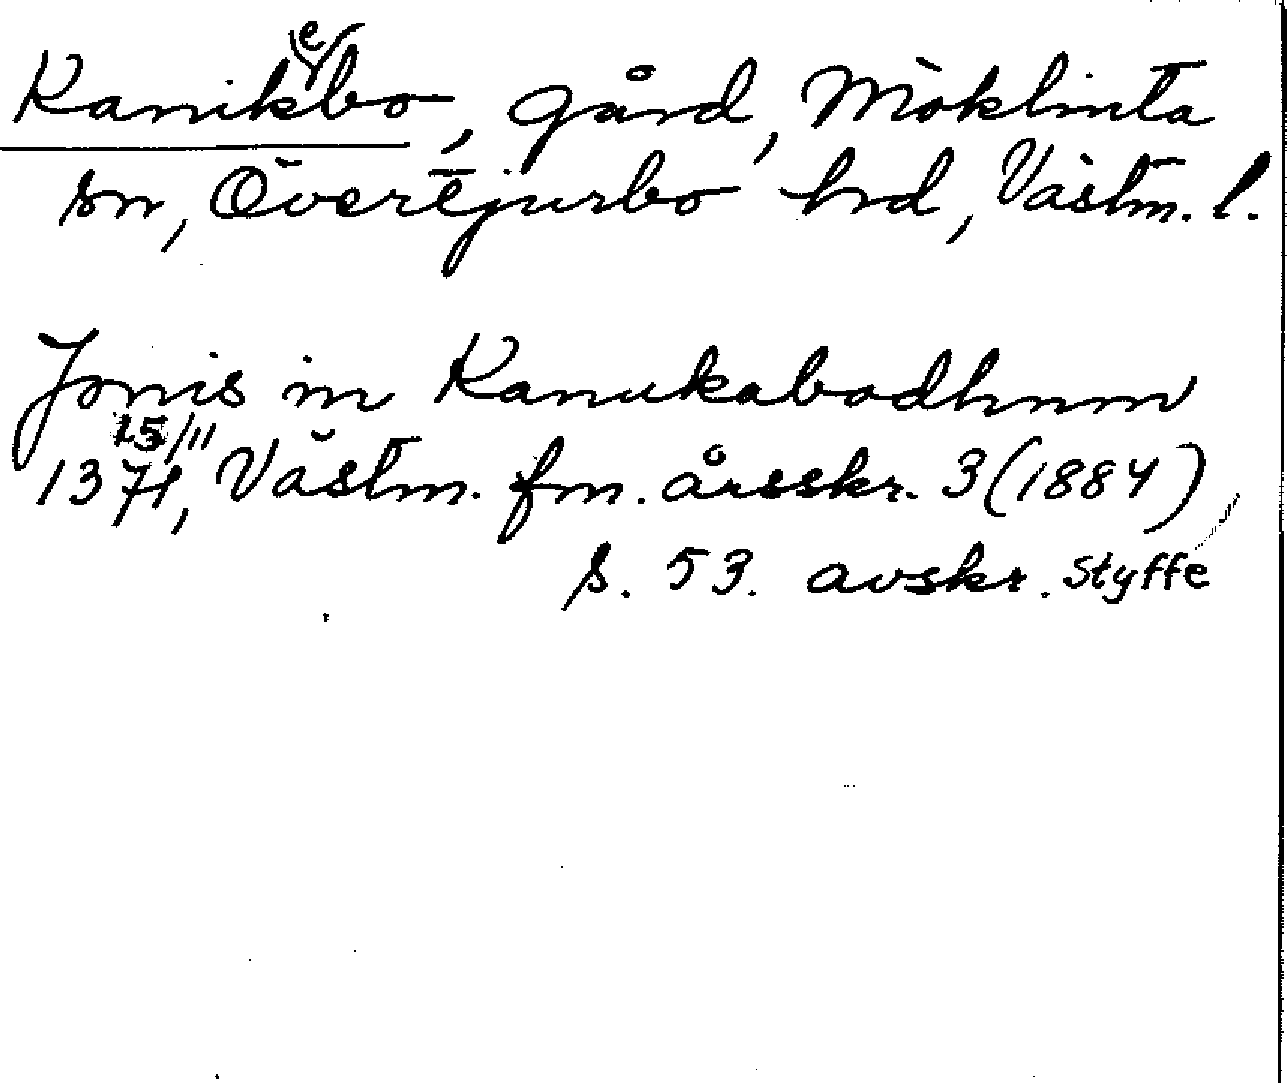 Kanikebo, gård, Möklinta
sn, Övertjurbo hd, Västm. l.
Jonis in Kanukabodhum
15/11
1371, Västm. fm. årsskr. 3 (1884)
s. 53. avskr. Styffe